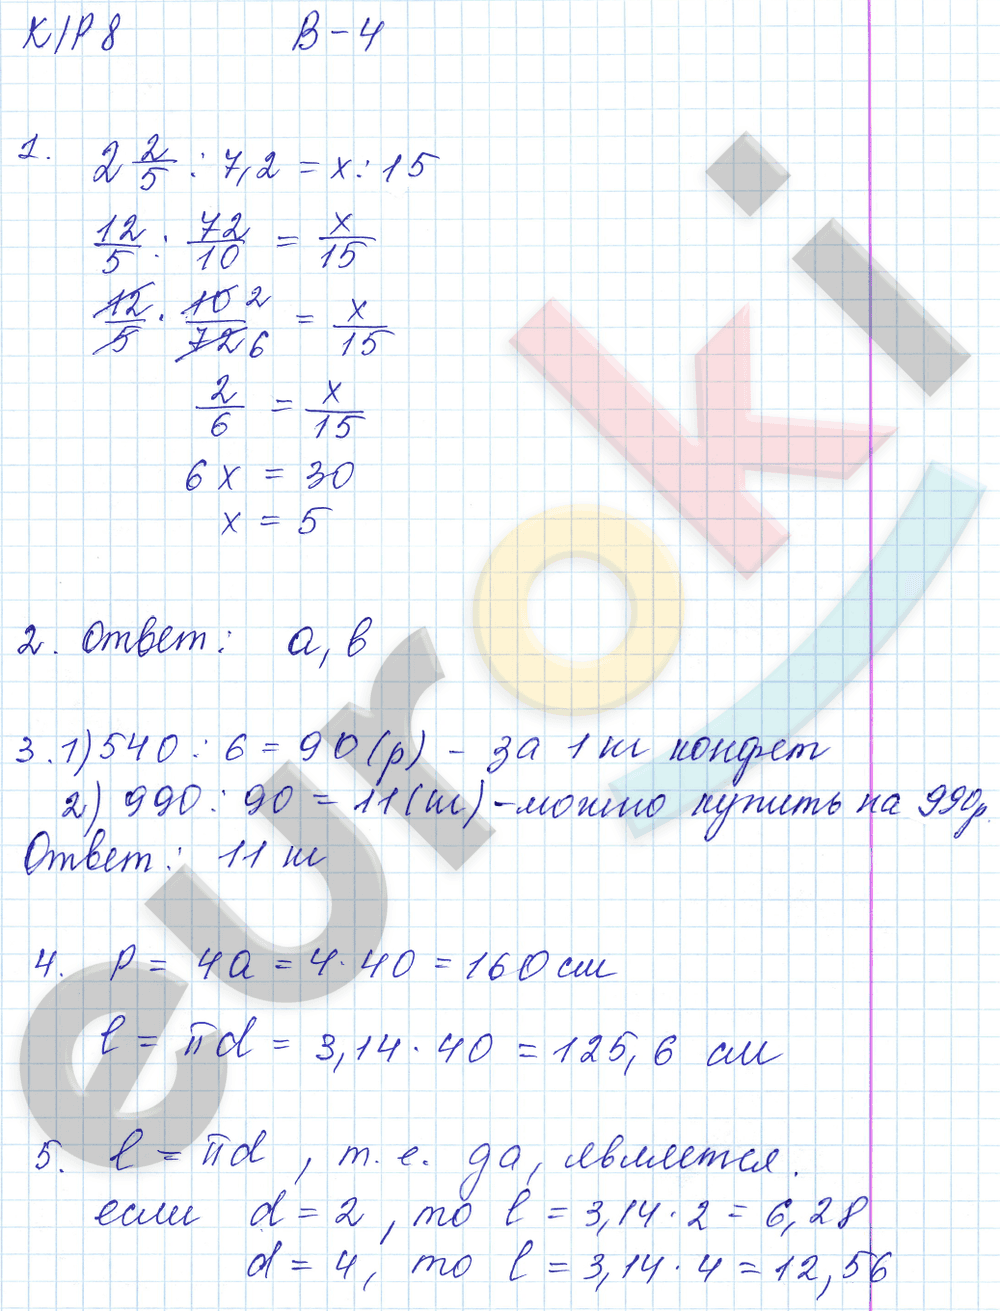 К/Р 8 В-4
1. 2 2/5 : 7,2 = x : 15
12/5 : 72/10 = x/15
12/5 · 10 2/72 6 = x/15
2/6 = x/15
6x = 30
x = 5
2. Ответ: а, в
3. 1) 540 : 6 = 90 (р) - за 1 кг конфет
2) 990 : 90 = 11 (кг) - можно купить на 990 р.
Ответ: 11 кг
4. P = 4a = 4·40 = 160 см
l = πd = 3,14·40 = 125,6 см
5. l = πd, т.е. да, является.
если d = 2, то l = 3,14·2 = 6,28
d = 4, то l = 3,14·4 = 12,56
euroki